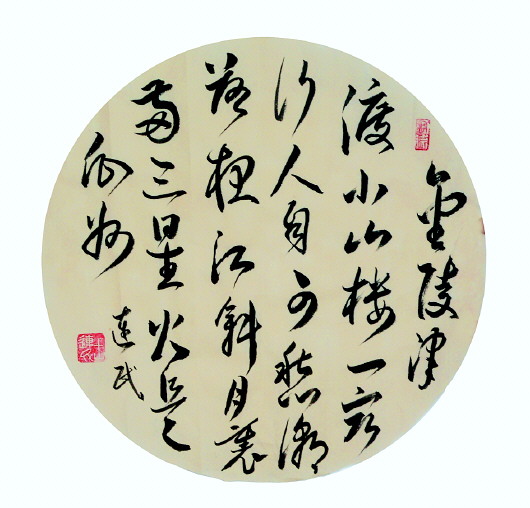 金陵津
渡小山楼一宿
行人自可愁潮
落夜江斜月裏
两三星火是
瓜州